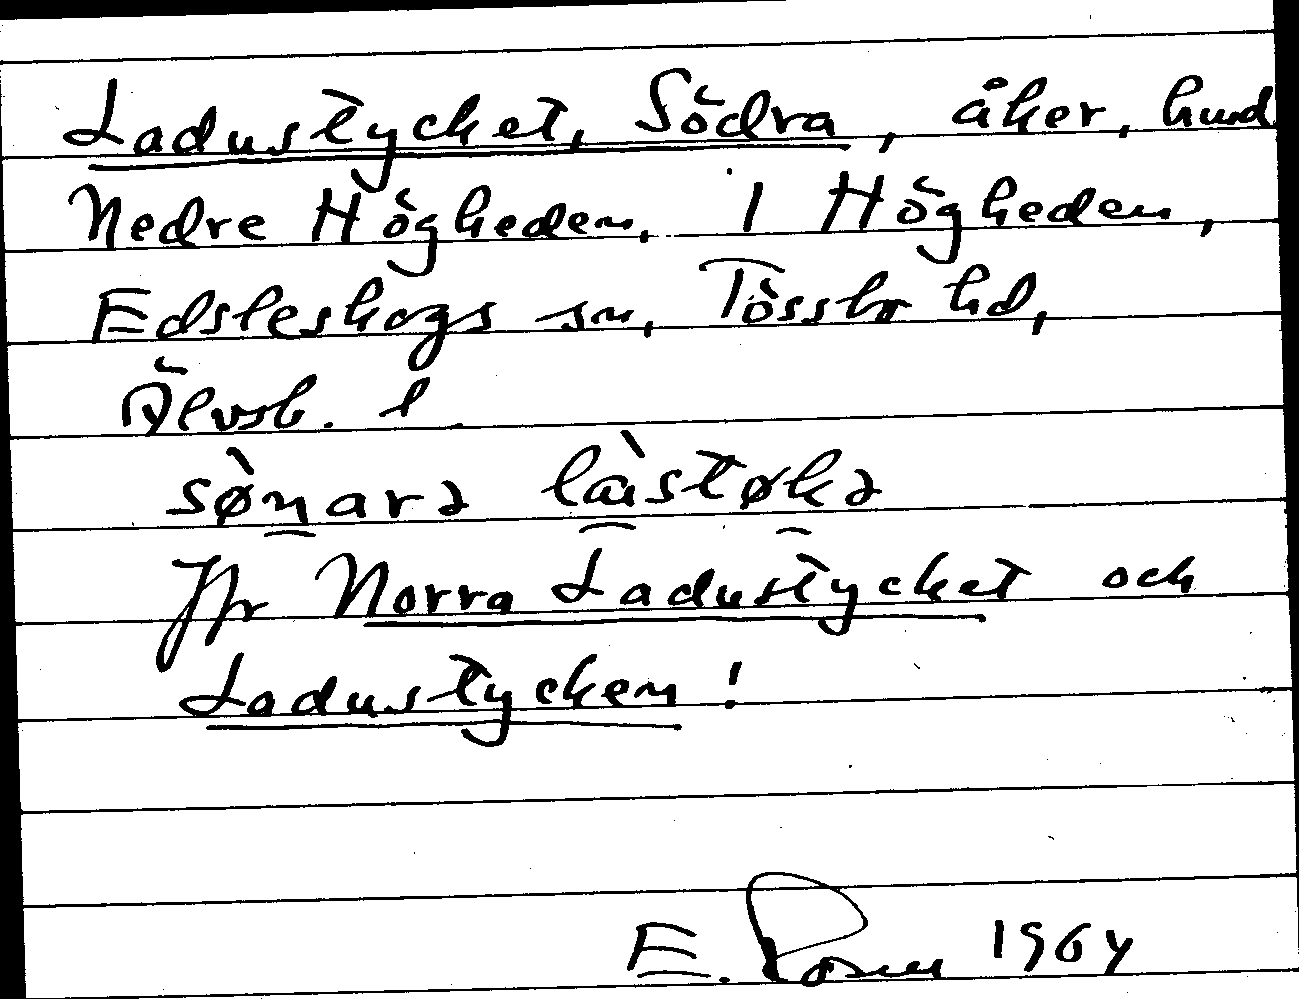 Ladustycket, Södra, åker, hund
Nedre Högheden, 1 Högheden,
Edsleskogs sn, Tössbo hd,
Älvsb. l.
sø̀n̯arə
Jfr Norra Ladustycket och
Ladustycken!
E. 1964